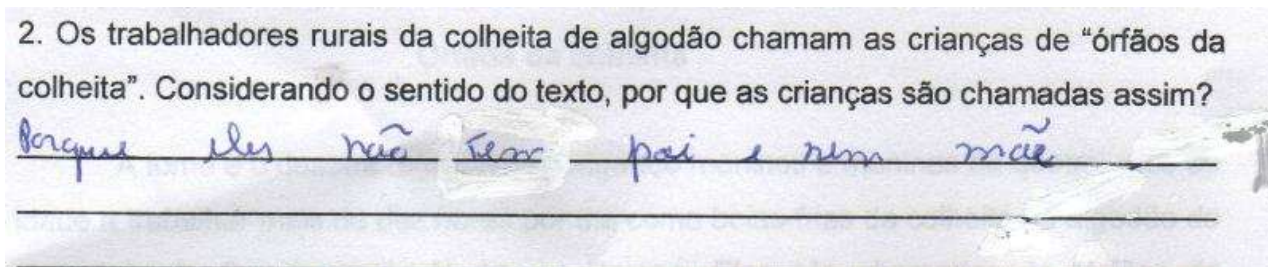 2. Os trabalhadores rurais da colheita de algodão chamam as crianças de “órfãos da
colheita”. Considerando o sentido do texto, por que as crianças são chamadas assim?
Porque eles não tem pai e nem mãe